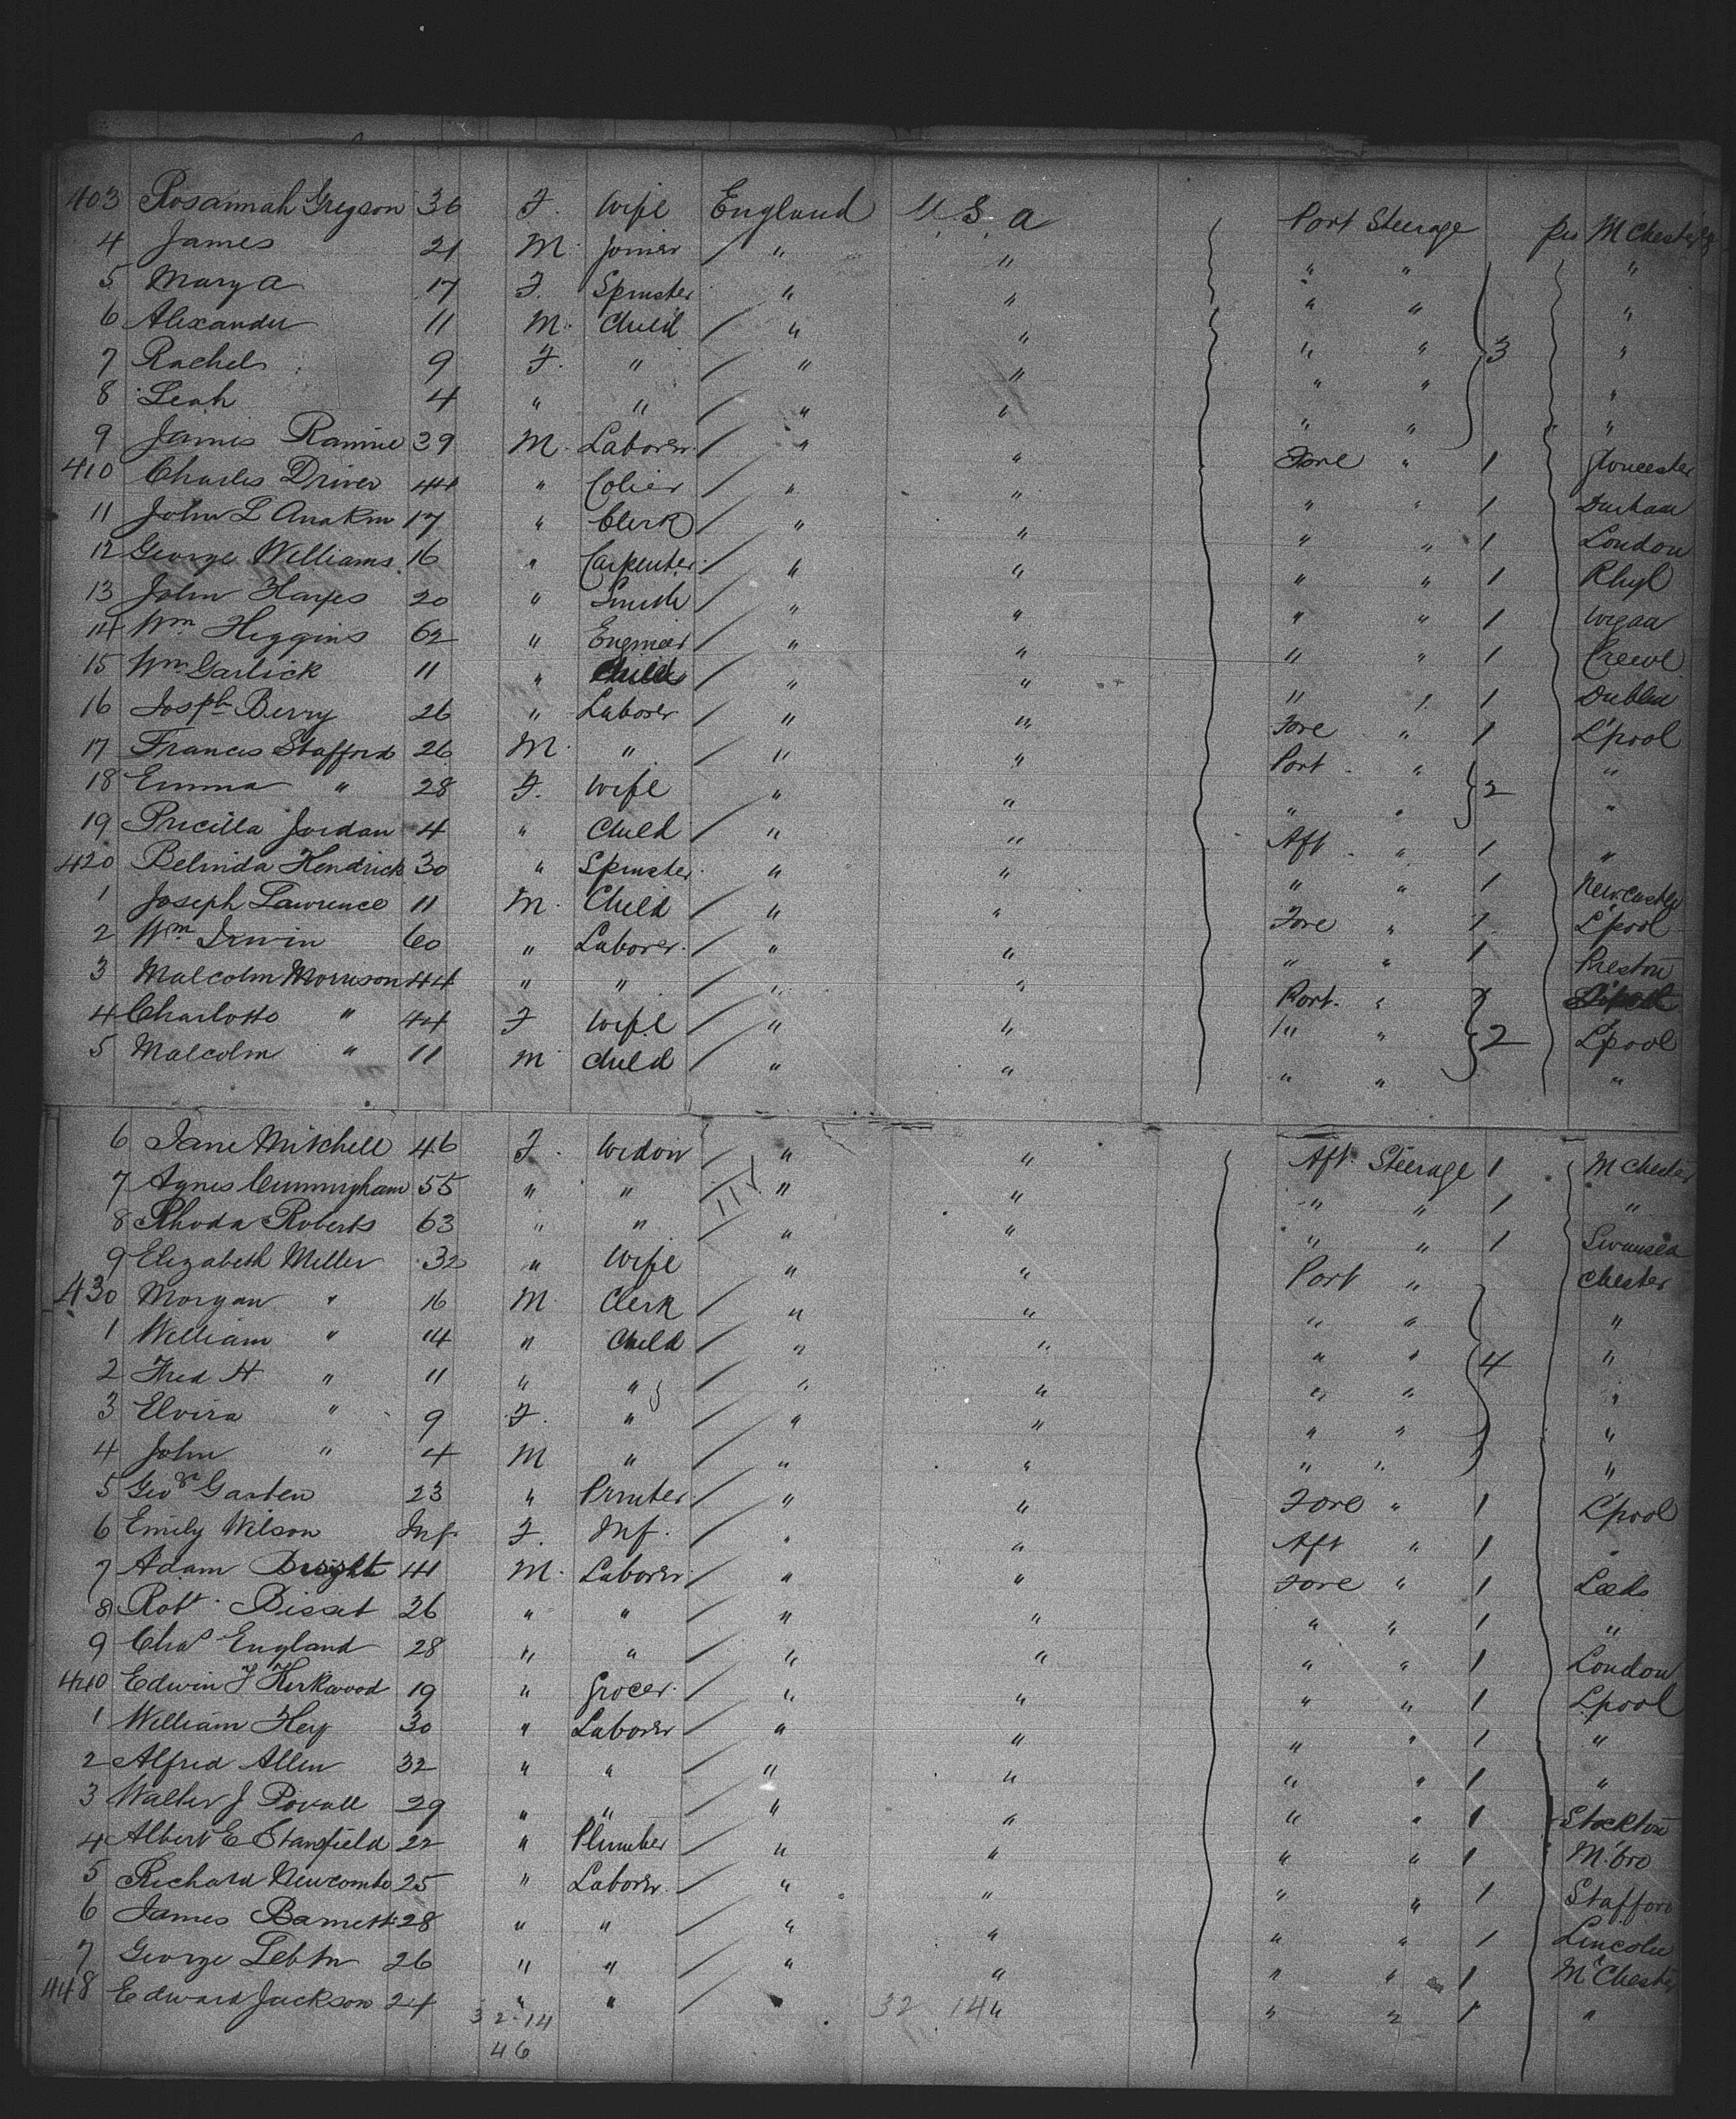 403 Rosannah Gregson 36 F. Wife England U.S.A Port Steerage 3 pcs M Chester
4 James 21 M. Joiner / " " " " "
5 Mary A 17 F. Spinster " " " " "
6 Alexander 11 M. Child / " " " " "
7 Rachel 9 F. " / " " " " "
8 Leah 4 " " / " " " " "
9 James 39 M. Laborer / " " Fore " 1 Gloucester
410 Charles Driver 44 " Colier / " " " " 1 Durham
11 John L Anakin 17 " Clerk / " " " " 1 London
12 George Williams 16 " Carpenter / " " " " 1 Rhyl
13 John Hayes 20 " Smith / " " " " 1 Wigan
14 Wm Higgins 62 " Engineer / " " " " 1 Crewe
15 Wm Garlick 11 " Child / " " " " 1 Dublin
16 Josph Berry 26 " Laborer / " " Fore " 1 L'pool
17 Francis Stafford 26 M. " / " " Port " 2 "
18 Emma " 28 F. Wife / " " " " "
19 Pricilla Jordan 4 " Child / " " Aft " 1 "
420 Belinda Hendrick 30 " Spinster / " " " " 1 Newcastle
1 Joseph Lawrence 11 M. Child / " " Fore " 1 L'pool
2 Wm Irwin 60 " Laborer / " " " " 1 Preston
3 Malcolm Morrison 44 " " / " " Port " 2
4 Charlotte " 44 F Wife / " " " " L'pool
5 Malcolm " 11 M Child / " " " " "
6 Jane Mitchell 46 F. Widow / " " Aft Steerage 1 M Chester
7 Agnes Cunningham 55 " " / " " " " 1 "
8 Rhoda Roberts 63 " " / " " " " 1 Swansea
9 Elizabeth Miller 32 " Wife " " Port " 4 Chester
430 Morgan " 16 M. Clerk / " " " " "
1 William " 14 " Child / " " " " "
2 Fred H " 11 " " / " " " " "
3 Elvira " 9 F. " / " " " " "
4 John " 4 M " / " " " " "
5 Geo Garten 23 " Printer / " " Fore " 1 L'pool
6 Emily Wilson Inf. F. Inf. / " " Aft " 1 "
7 Adam Bright 41 M. Laborer / " " Fore " 1 Leeds
8 Robt. Bisset 26 " " / " " " " 1 "
9 Chas England 28 " " / " " " " 1 London
440 Edwin J Kirkwood 19 " Grocer / " " " " 1 L'pool
1 William Hey 30 " Laborer / " " " " 1 "
2 Alfred Allen 32 " " / " " " " 1 "
3 Walter J Povall 29 " " / " " " " 1 Stockton
4 Albert E Stansfield 22 " Plumber / " " " " 1 M.bro
5 Richard Newcombe 25 " Laborer / " " " " 1 Stafford
6 James Barnett 28 " " / " " " " 1 Lincoln
7 George 26 " " / " " " " 1 M Chester
448 Edward Jackson 24 " " / " " " " 1 "
32 14 32 14
46